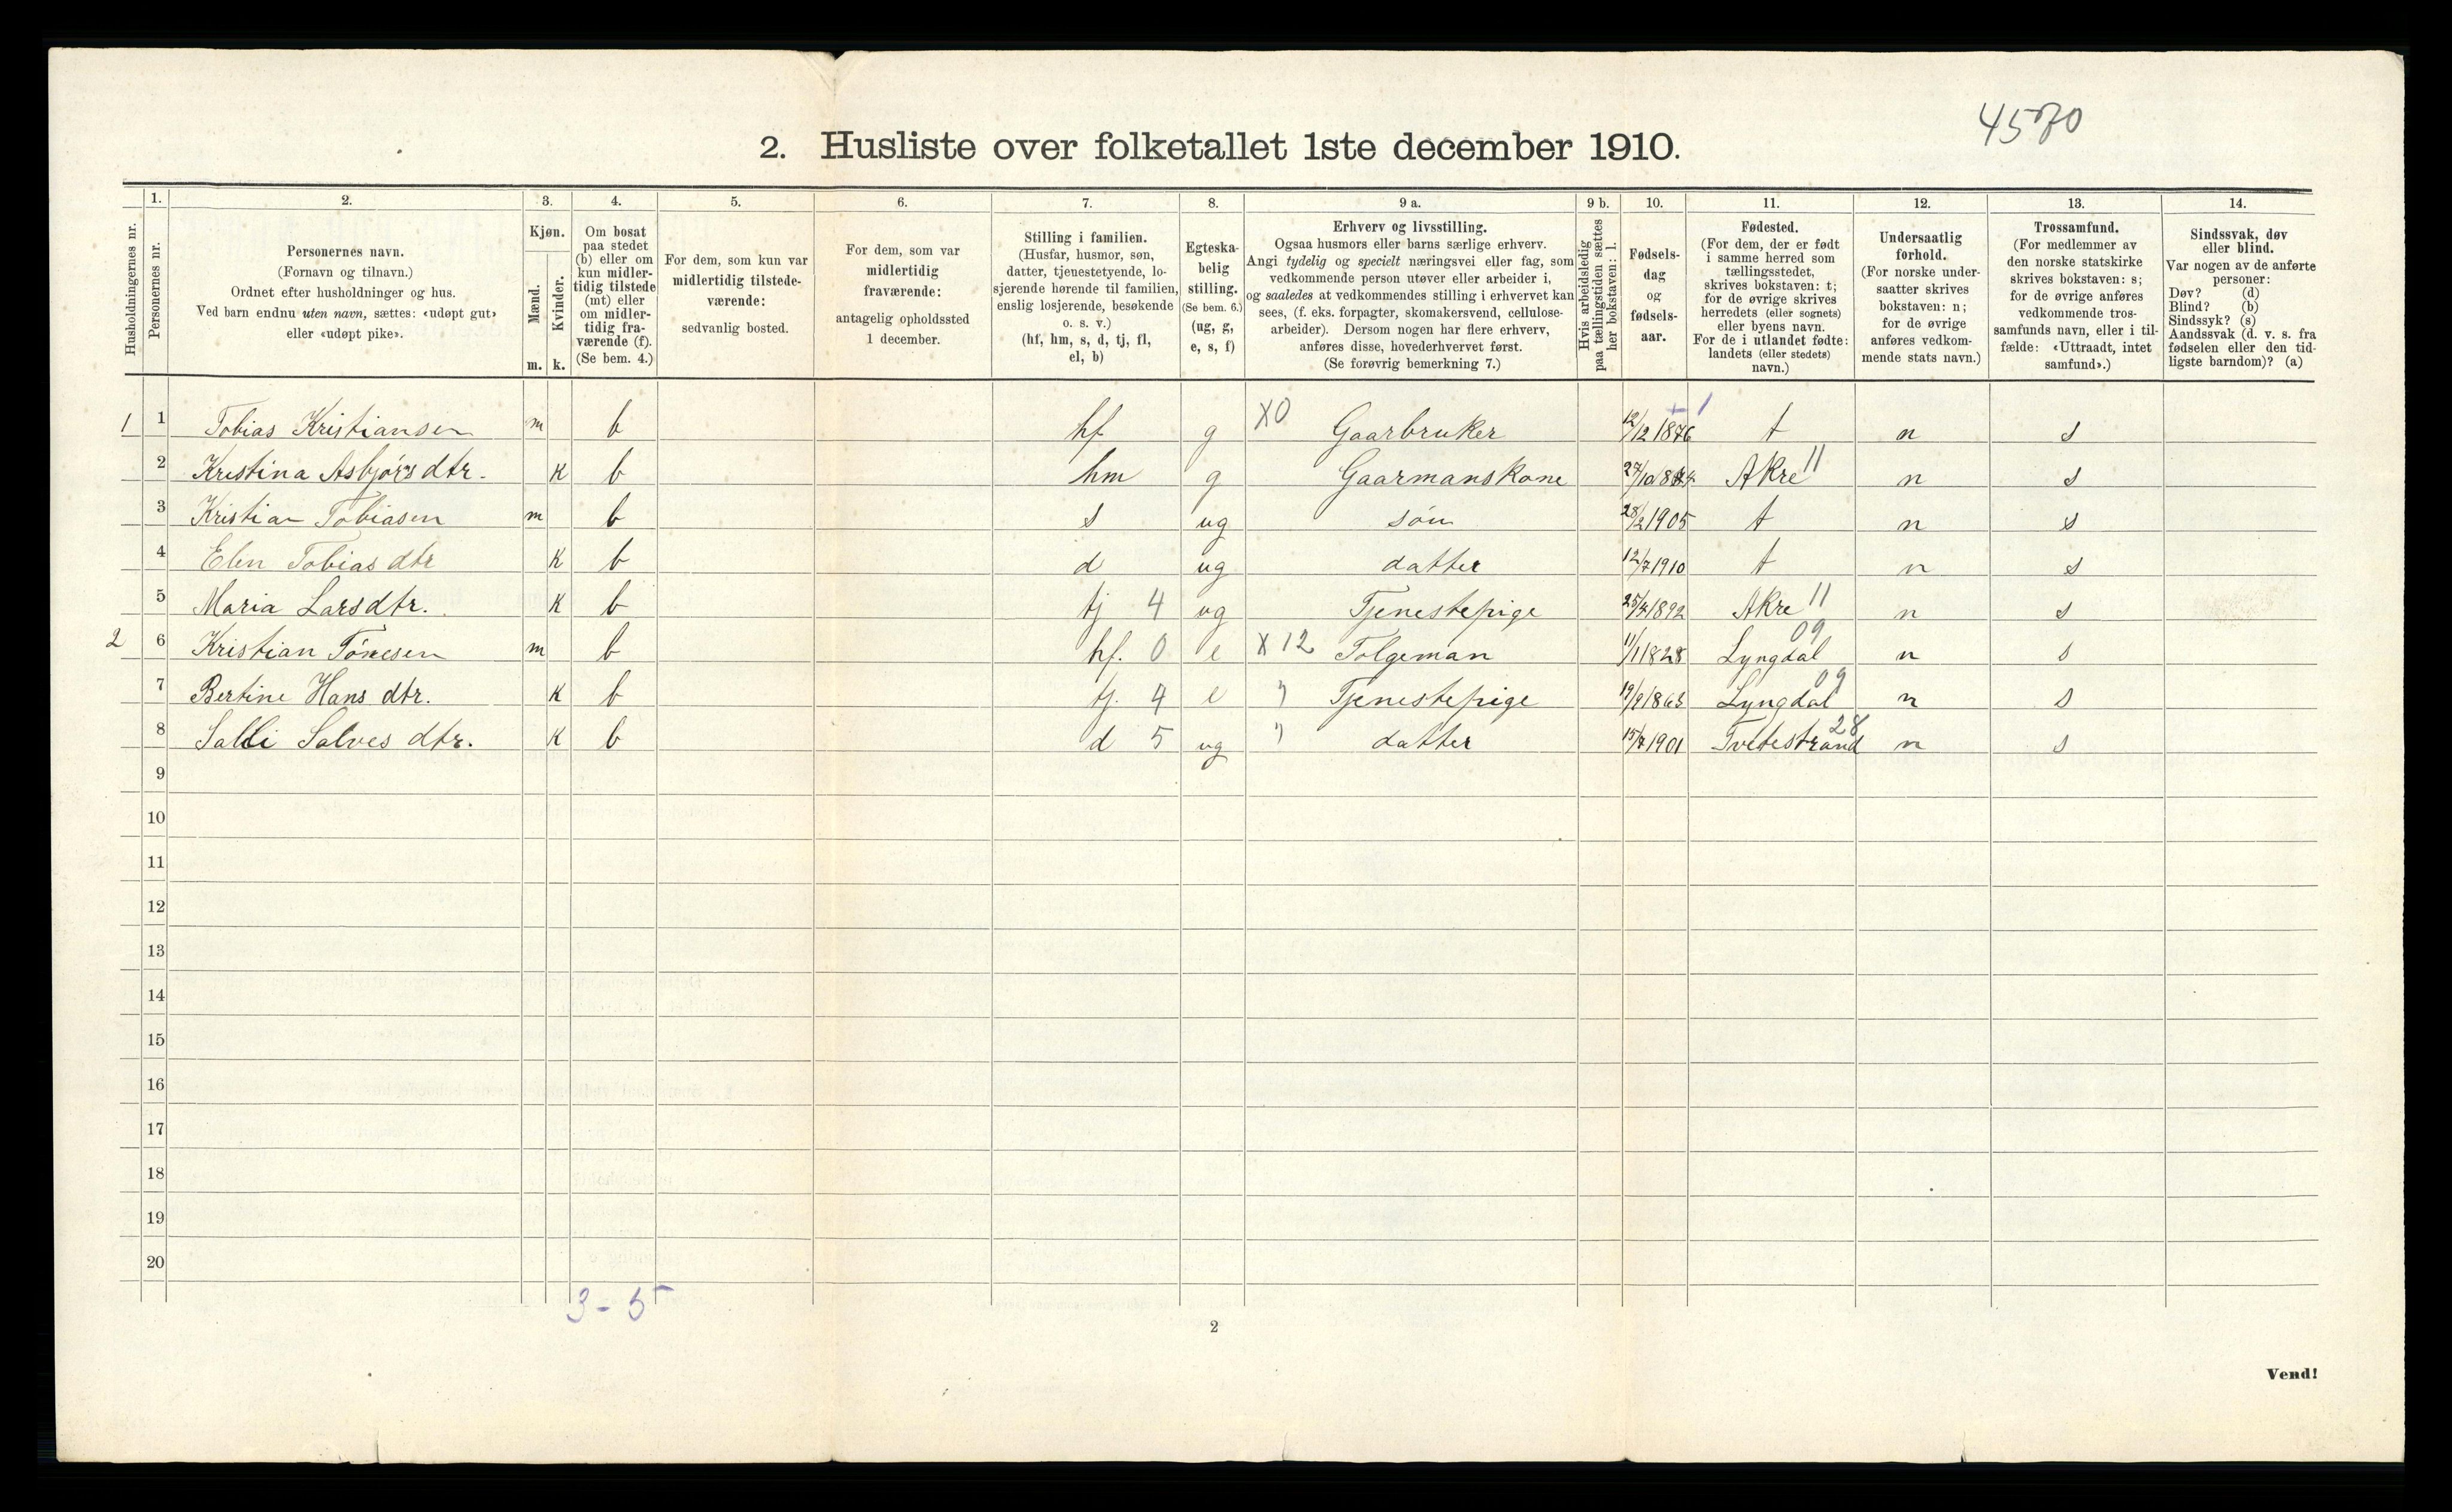 4570
2. Husliste over folketallet 1ste december 1910.
Husholdningernes nr.
1. Personernes nr.
2. Personernes navn. (Fornavn og tilnavn.) Ordnet efter husholdninger og hus. Ved barn endnu uten navn, sættes: «udøpt gut» eller «udøpt pike».
3. Kjøn. Mænd. m. Kvinder. k.
4. Om bosat paa stedet (b) eller om kun midlertidig tilstede (mt) eller om midlertidig fraværende (f). (Se bem. 4.)
5. For dem, som kun var midlertidig tilstedeværende: sedvanlig bosted.
6. For dem, som var midlertidig fraværende: antagelig opholdssted 1 december.
7. Stilling i familien. (Husfar, husmor, søn, datter, tjenestetyende, losjerende hørende til familien, enslig losjerende, besøkende o. s. v.) (hf, hm, s, d, tj, fl, el, b)
8. Egteskabelig stilling. (Se bem. 6.) (ug, g, e, s, f)
9 a. Erhverv og livsstilling. Ogsaa husmors eller barns særlige erhverv. Angi tydelig og specielt næringsvei eller fag, som vedkommende person utøver eller arbeider i, og saaledes at vedkommendes stilling i erhvervet kan sees, (f. eks. forpagter, skomakersvend, cellulosearbeider). Dersom nogen har flere erhverv, anføres disse, hovederhvervet først. (Se forøvrig bemerkning 7.)
9 b. Hvis arbeidsledig paa tællingstiden sættes her bokstaven: l.
10. Fødselsdag og fødselsaar.
11. Fødested. (For dem, der er født i samme herred som tællingsstedet, skrives bokstaven: t; for de øvrige skrives herredets (eller sognets) eller byens navn. For de i utlandet fødte: landets (eller stedets) navn.)
12. Undersaatlig forhold. (For norske undersaatter skrives bokstaven: n; for de øvrige anføres vedkommende stats navn.)
13. Trossamfund. (For medlemmer av den norske statskirke skrives bokstaven: s; for de øvrige anføres vedkommende trossamfunds navn, eller i tilfælde: «Uttraadt, intet samfund».)
14. Sindssvak, døv eller blind. Var nogen av de anførte personer: Døv? (d) Blind? (b) Sindssyk? (s) Aandssvak (d. v. s. fra fødselen eller den tidligste barndom)? (a)
1 1 Tobias Kristiansen m b hf g X0 Gaarbruker 12/12 1876 t n s
2 Kristina Asbjörs dtr. K b hm g Gaarmanskone 27/10 1874 Akre 11 n s
3 Kristian Tobiasen m b s ug sön 28/2 1905 t n s
4 Elen Tobias dtr K b d ug datter 12/7 1910 t n s
5 Maria Lars dtr. K b tj 4 ug Tjenestepige 25/7 1892 Akre 11 n s
2 6 Kristian Tönesen m b hf. 0 e X 12 Folgeman 11/1 1828 Lyngdal 09 n s
7 Bertine Hans dtr. K b tj. 4 e " Tjenestepige 19/9 1863 Lyngdal 09 n s
8 Salli Salves dtr. K b d 5 ug " datter 15/7 1901 Tvedestrand 28 n s
9
10
11
12
13
14
15
16
17
18
19
20
3 - 5
2
Vend!